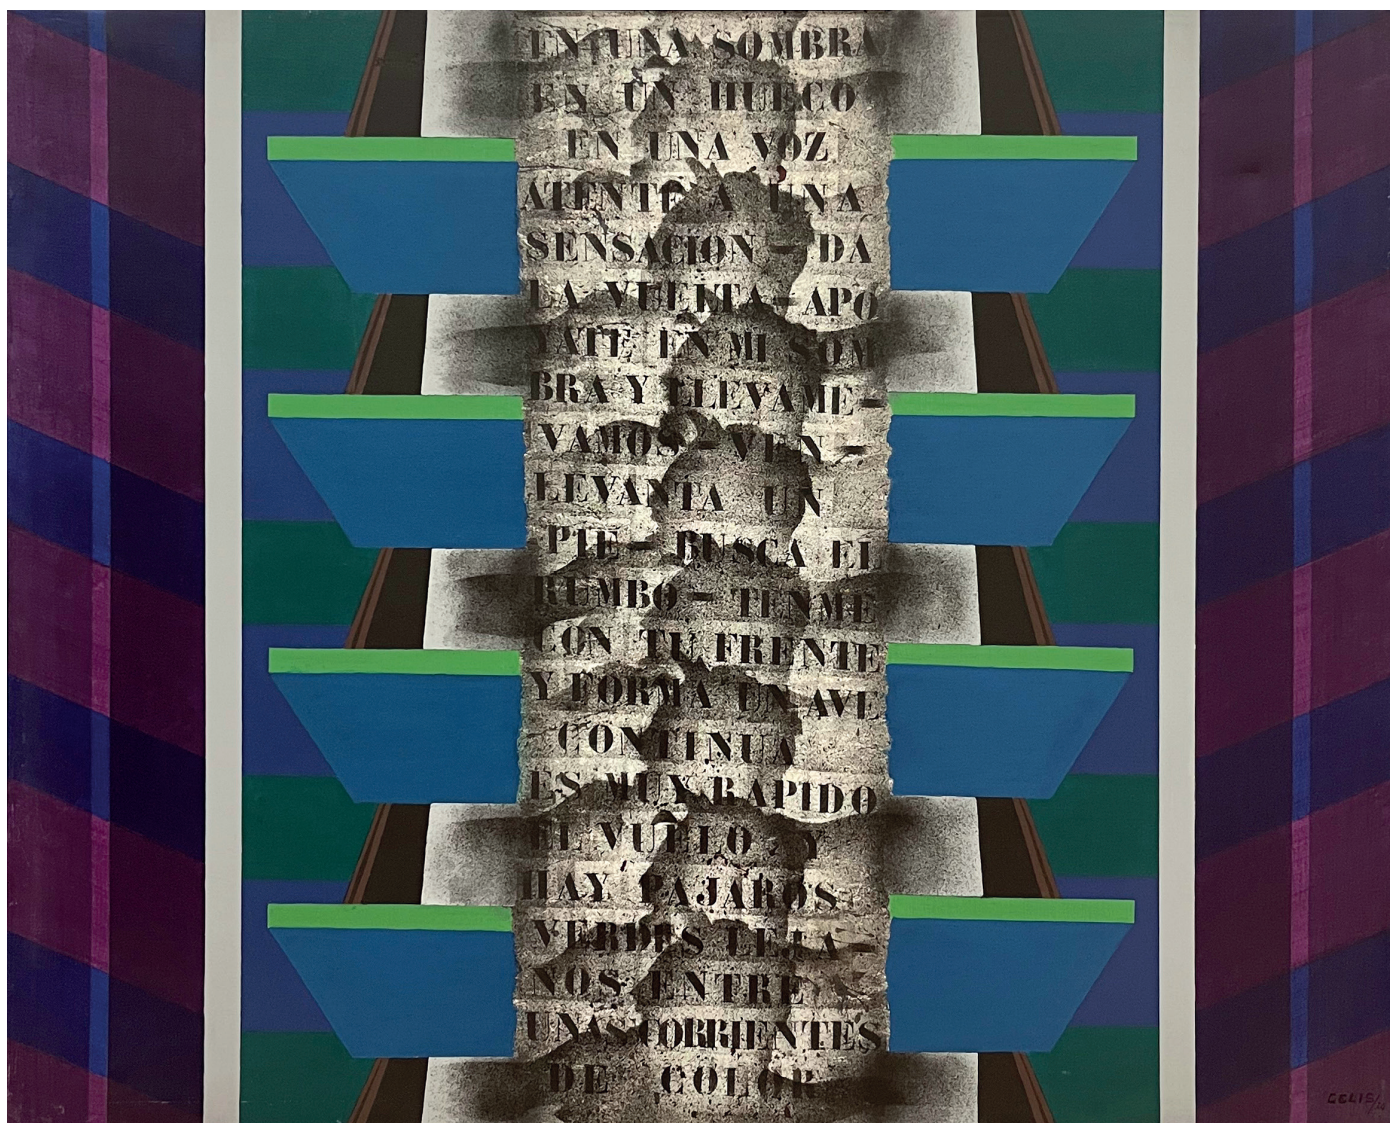 EN UNA SOMBRA
EN UN HUECO
EN UNA VOZ
ATENTE A UNA
SENSACION - DA
LA VUELTA - APO
YATE EN MI SOM
BRA Y LLEVAME -
VAMOS - VEN -
LEVANTA UN
PIE - BUSCA EL
RUMBO - TENME
CON TU FRENTE
Y FORMA UN AVE
CONTINUA
ES MUY RAPIDO
EL VUELO . Y
HAY PAJAROS
VERDES LEJA -
NOS ENTRE
UNAS CORRIENTES
DE COLOR